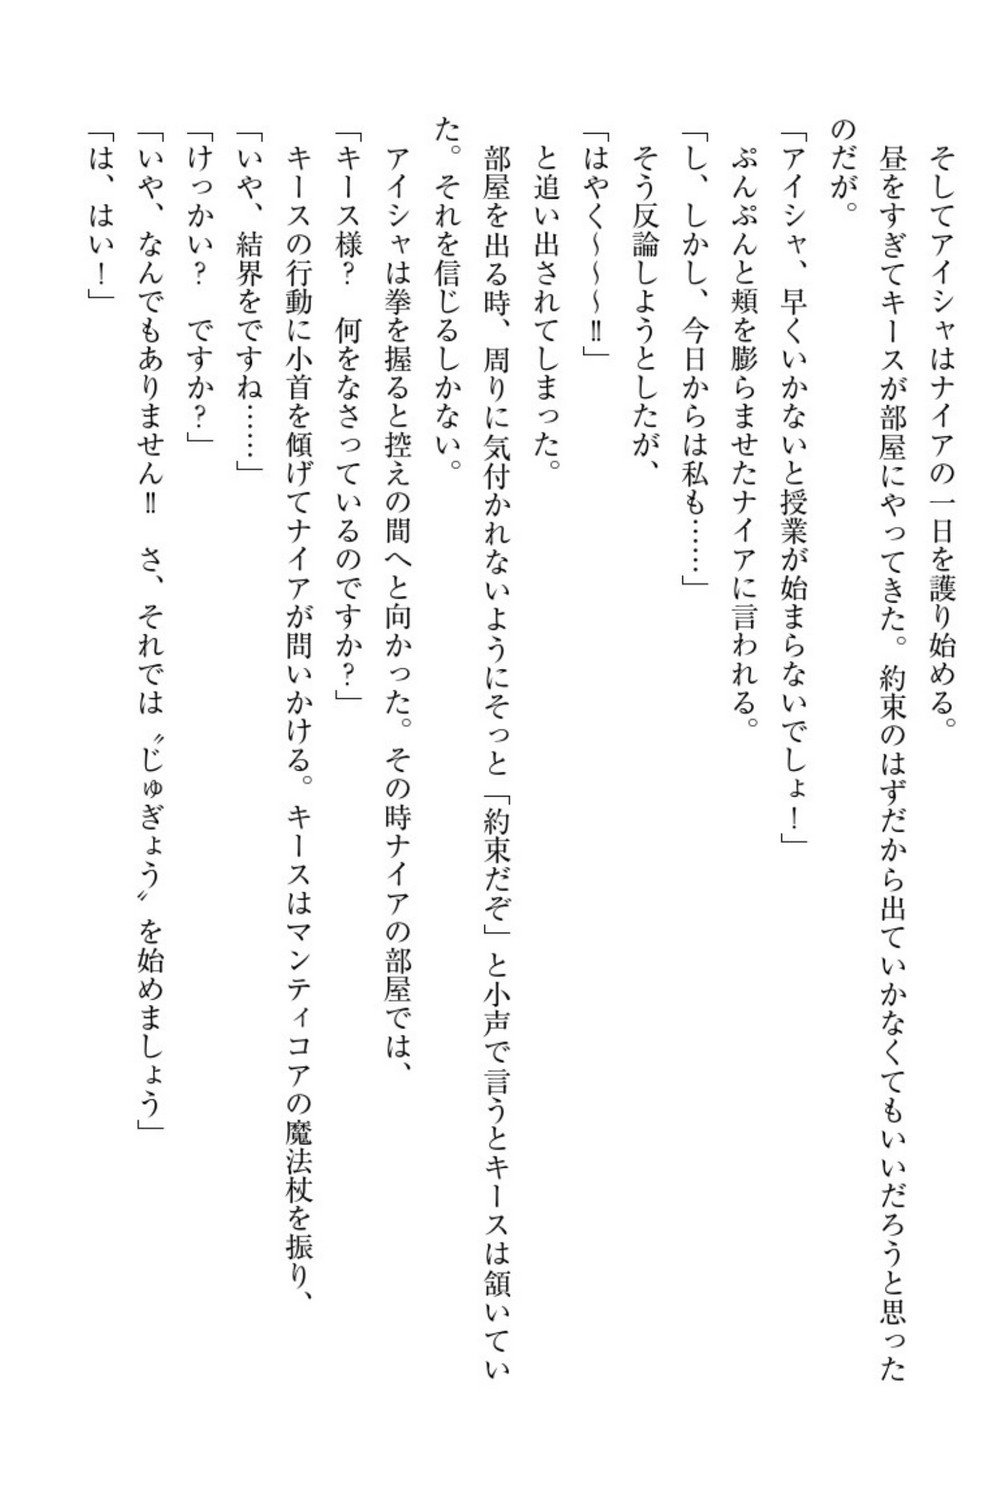 そしてアイシャはナイアの一日を護り始める。
昼をすぎてキースが部屋にやってきた。約束のはずだから出ていかなくてもいいだろうと思った
のだが。
「アイシャ、早くいかないと授業が始まらないでしょ！」
ぷんぷんと頬を膨らませたナイアに言われる。
「し、しかし、今日からは私も……」
そう反論しようとしたが、
「はやく～～～‼」
と追い出されてしまった。
部屋を出る時、周りに気付かれないようにそっと「約束だぞ」と小声で言うとキースは頷いてい
た。それを信じるしかない。
アイシャは拳を握ると控えの間へと向かった。その時ナイアの部屋では、
「キース様？　何をなさっているのですか？」
キースの行動に小首を傾げてナイアが問いかける。キースはマンティコアの魔法杖を振り、
「いや、結界をですね……」
「けっかい？　ですか？」
「いや、なんでもありません‼　さ、それでは〝じゅぎょう〟を始めましょう」
「は、はい！」